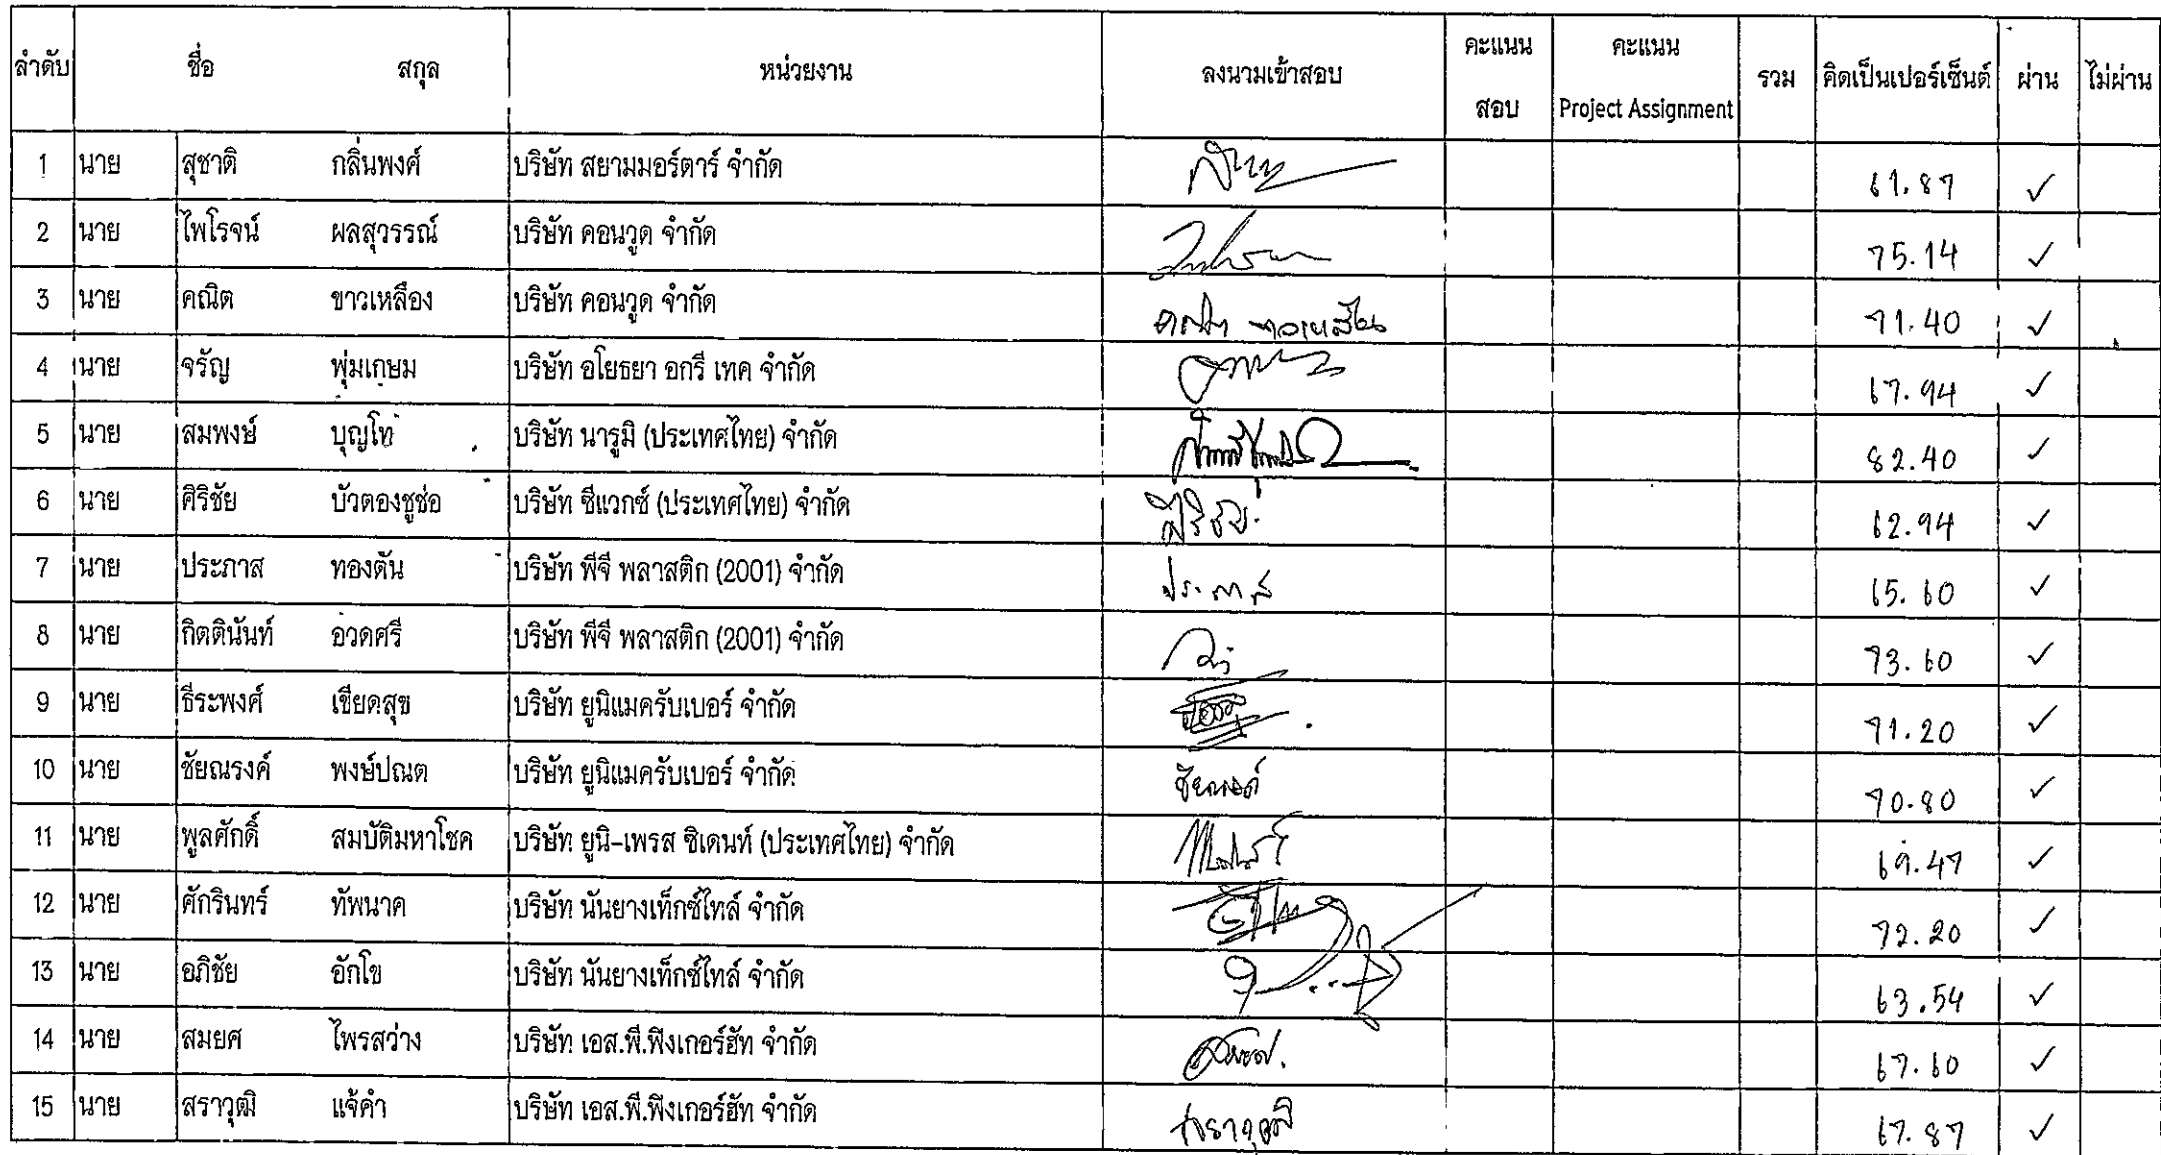 ลำดับ ชื่อ สกุล หน่วยงาน ลงนามเข้าสอบ คะแนน สอบ คะแนน Project Assignment รวม คิดเป็นเปอร์เซ็นต์ ผ่าน ไม่ผ่าน
1 นาย สุชาติ กลิ่นพงศ์ บริษัท สยามมอร์ตาร์ จำกัด 61.87 ✓
2 นาย ไพโรจน์ ผลสุวรรณ์ บริษัท คอนวูด จำกัด 75.14 ✓
3 นาย คณิต ขาวเหลือง บริษัท คอนวูด จำกัด 71.40 ✓
4 นาย จรัญ พุ่มเกษม บริษัท อโยธยา อกรี เทค จำกัด 67.94 ✓
5 นาย สมพงษ์ บุญโท บริษัท นารูมิ (ประเทศไทย) จำกัด 82.40 ✓
6 นาย ศิริชัย บัวตองชูช่อ บริษัท ซีแวกซ์ (ประเทศไทย) จำกัด ศิริชัย 62.94 ✓
7 นาย ประภาส ทองดัน บริษัท พีจี พลาสติก (2001) จำกัด ประภาส 65.60 ✓
8 นาย กิตตินันท์ อ่วดศรี บริษัท พีจี พลาสติก (2001) จำกัด 73.60 ✓
9 นาย ธีระพงศ์ เชียดสุข บริษัท ยูนิแมครับเบอร์ จำกัด 71.20 ✓
10 นาย ชัยณรงค์ พงษ์ปณต บริษัท ยูนิแมครับเบอร์ จำกัด ชัยณรงค์ 70.80 ✓
11 นาย พูลศักดิ์ สมบัติมหาโชค บริษัท ยูนิ-เพรส ซิเดนท์ (ประเทศไทย) จำกัด 69.47 ✓
12 นาย ศักรินทร์ ทัพนาค บริษัท นันยางเท็กซ์ไทล์ จำกัด 72.20 ✓
13 นาย อภิชัย อักโข บริษัท นันยางเท็กซ์ไทล์ จำกัด 63.54 ✓
14 นาย สมยศ ไพรสว่าง บริษัท เอส.พี.ฟิงเกอร์ฮัท จำกัด 67.60 ✓
15 นาย สราวุฒิ แจ้คำ บริษัท เอส.พี.ฟิงเกอร์ฮัท จำกัด สราวุฒิ 67.87 ✓